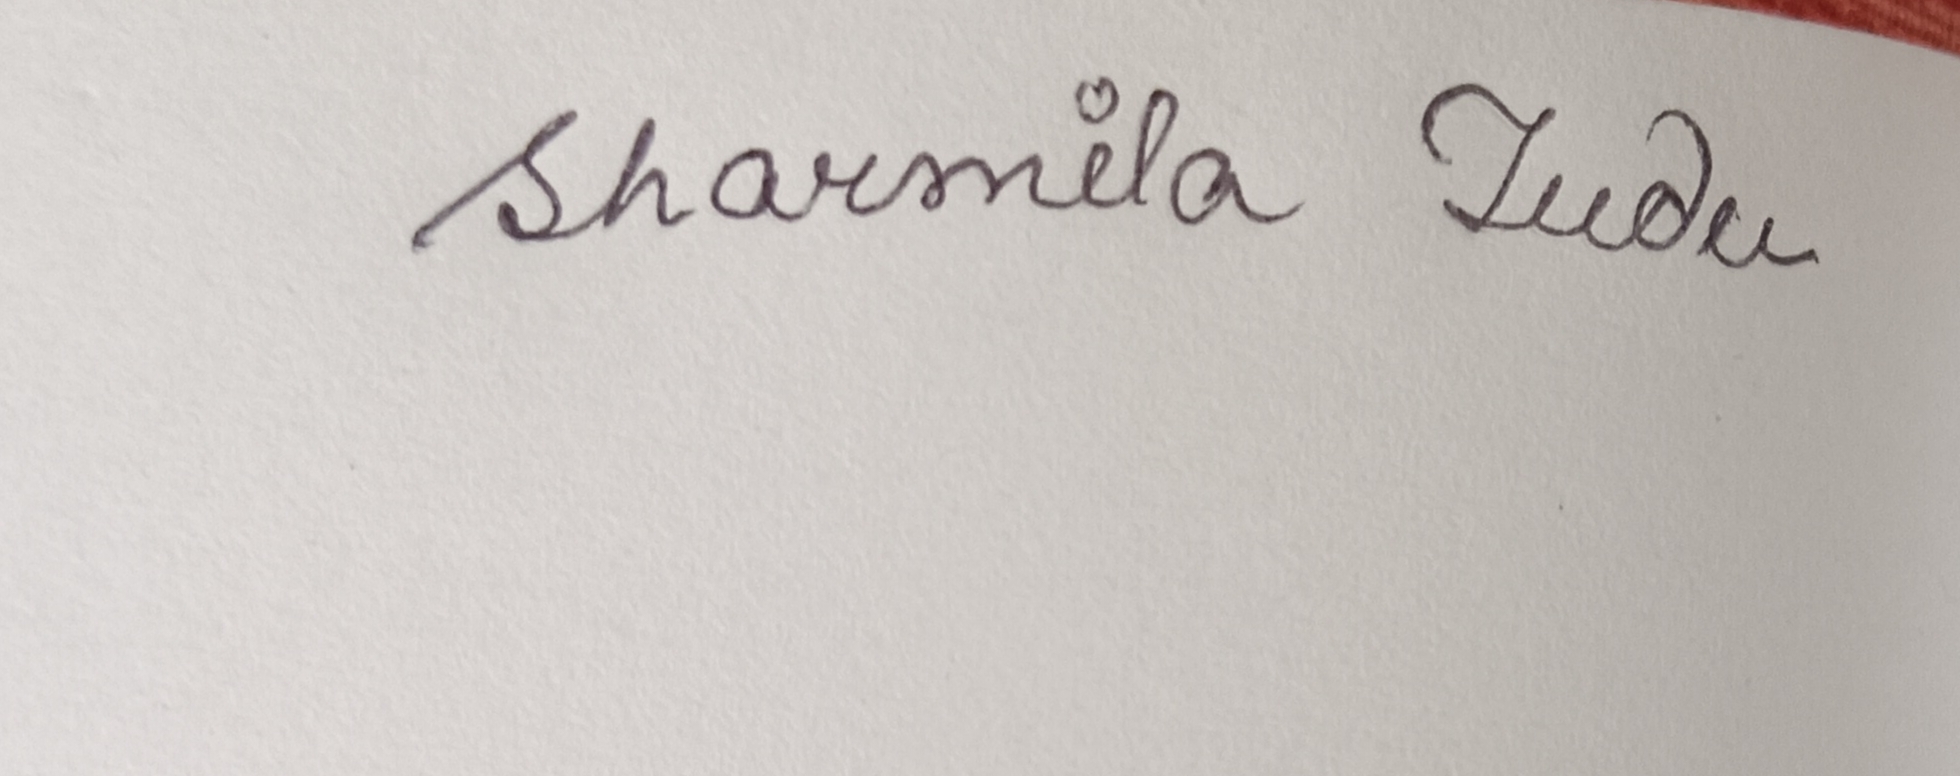 Sharmila Tudu